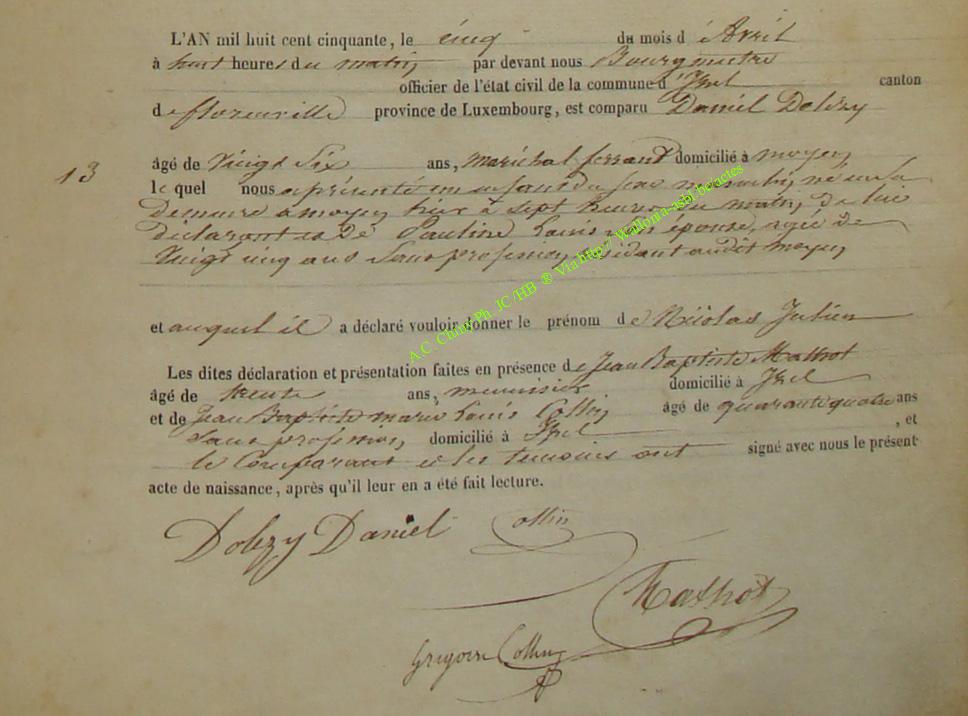 L'AN mil huit cent cinquante, le cinq du mois d'Avril
à huit heures du matin par devant nous Bourgmestre
officier de l'état civil de la commune d'Izel canton
de florenville province de Luxembourg, est comparu Daniel Dolizy
13 âgé de vingt Six ans, maréchal ferrant domicilié à moyen
lequel nous a présenté un enfant du sexe masculin, né en sa
demeure à moyen hier à sept heures du matin, de lui
déclarant et de Pauline Louis son épouse, agée de
vingt cinq ans Sans profession, résidant audit moyen
et auquel il a déclaré vouloir donner le prénom de Nicolas Julien
Les dites déclaration et présentation faites en présence de Jean Baptiste Mathot
âgé de trente ans, meunisier domicilié à Izel
et de Jean Baptiste marie Louis Collin âgé de quarante quatre ans
Sans profession, domicilié à Izel, et
le Comparant et les temoins ont signé avec nous le présent
acte de naissance, après qu'il leur en a été fait lecture.
Dolizy Daniel Collin
Mathot
Grégoire Collin
A.C. Chiny Ph. JC /HB ® Via http://Wallonia-asbl-be/actes